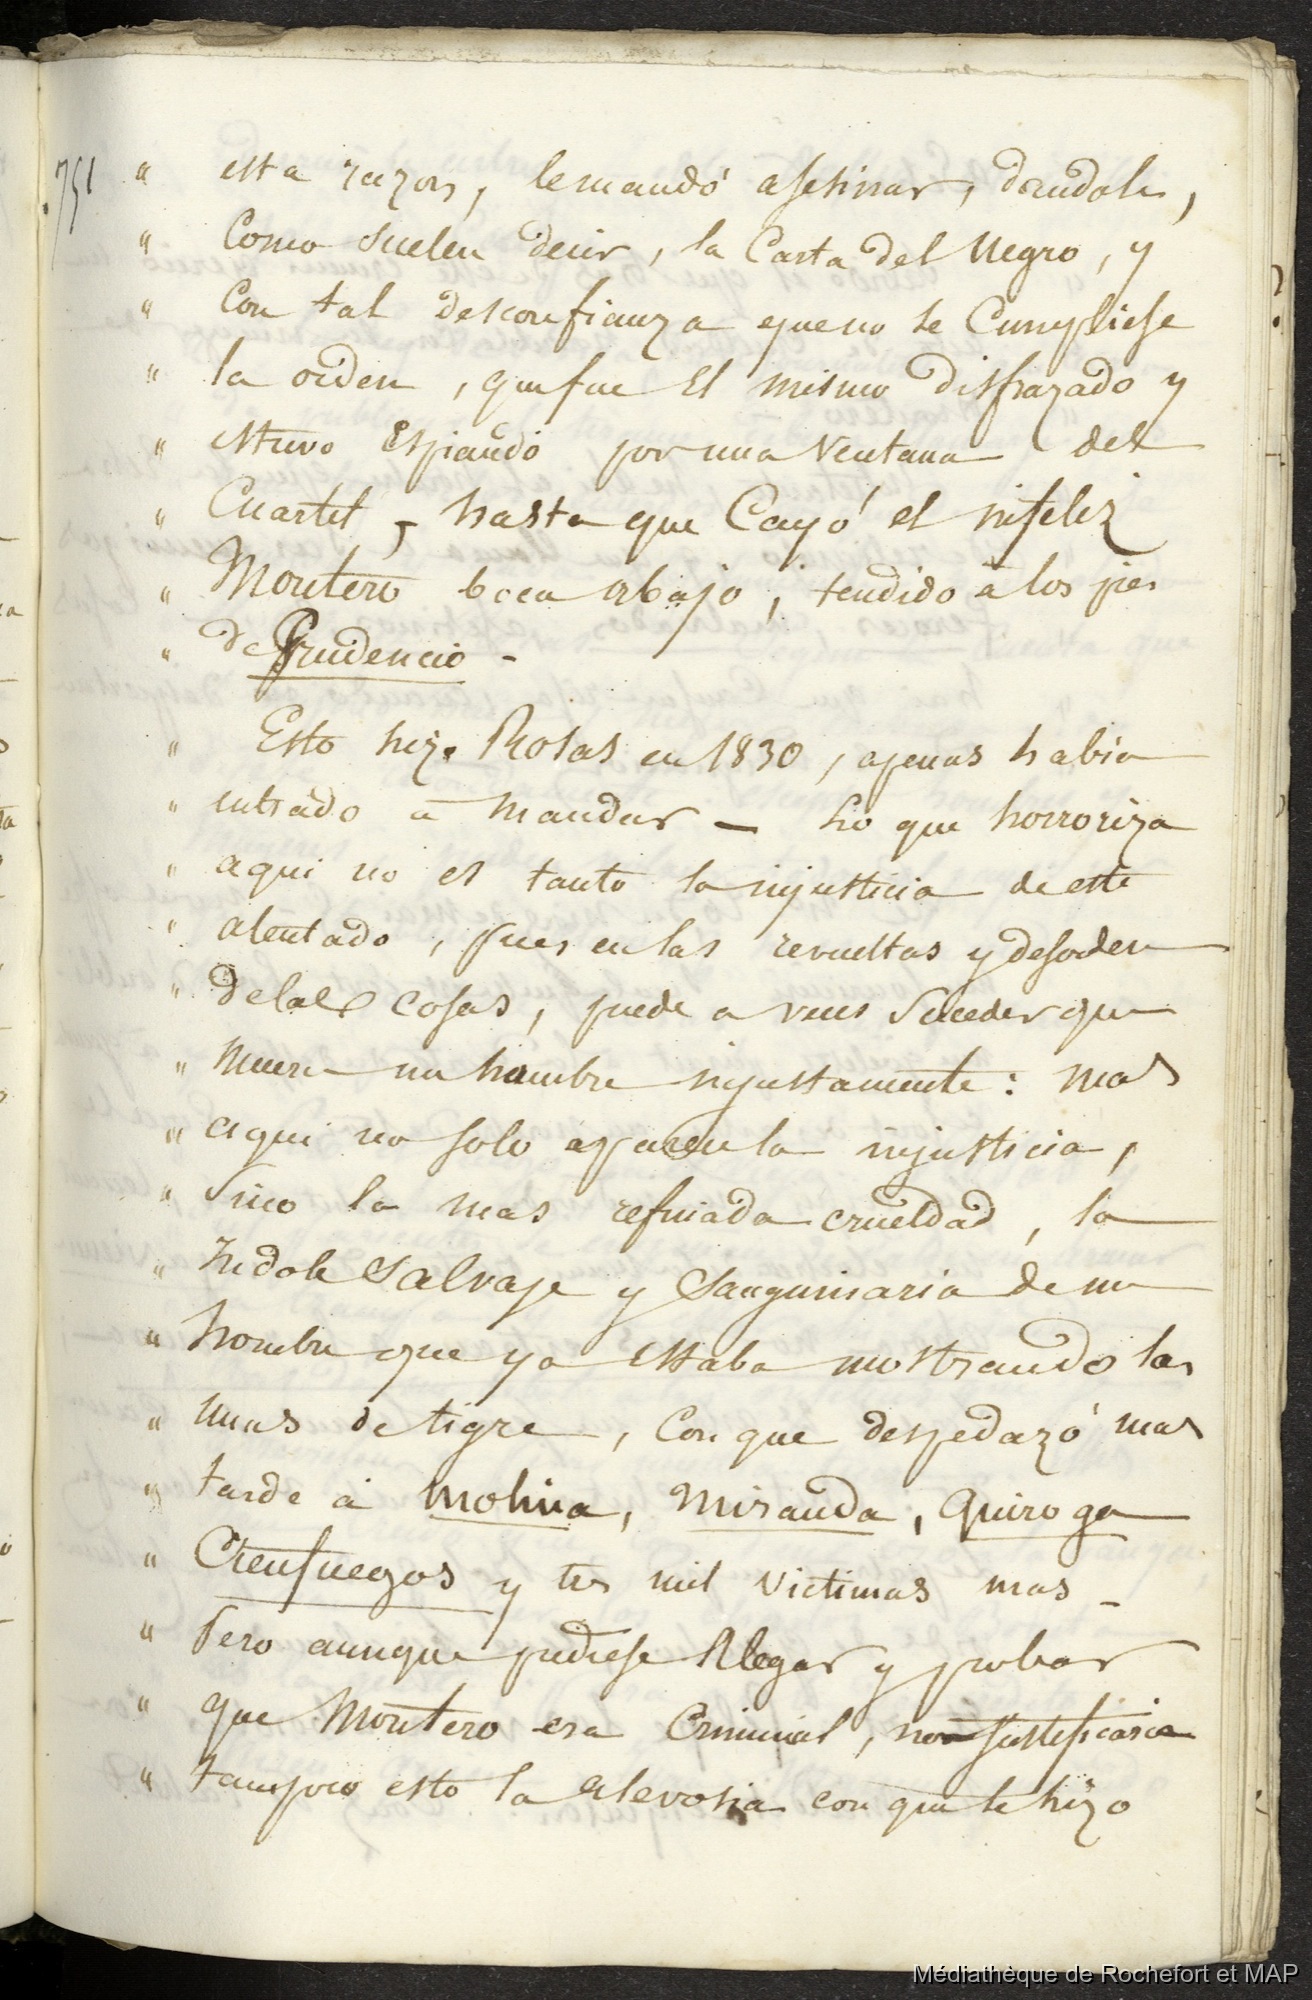 751
" esta razon, le mandó asesinar, dandole,
" Como suelen decir, la Carta del Negro, y
" Con tal desconfianza que no se Cumpliese
" la orden, que fue El mismo disfrazado y
" estuvo Espiando por una Ventana del
" Cuartel, hasta que Cayó el infeliz
" Montero boca abajo, tendido á los pies
" de Prudencio -
" Esto hizo Rosas en 1830, apenas habia
" entrado a mandar — Lo que horroriza
" aqui no es tanto la injusticia de este
" atentado, pues en las revueltas y desorden
" de las cosas, puede a veces Suceder que
" muera un hombre injustamente: mas
" aqui no solo aparece la injusticia,
" Sino la mas refinada crueldad, la
" Indole Salvaje y Sanguinaria de un
" hombre que ya estaba mostrando las
" unas de tigre, Con que despedazó mas
" tarde á Molina, Miranda, Quiroga
" Cienfuegos y tres mil Victimas mas -
" Pero aunque pudiese Alegar y probar
" que Montero era Criminal, no justificaria
" tampoco esto la alevosia con que le hizo
Médiathèque de Rochefort et MAP